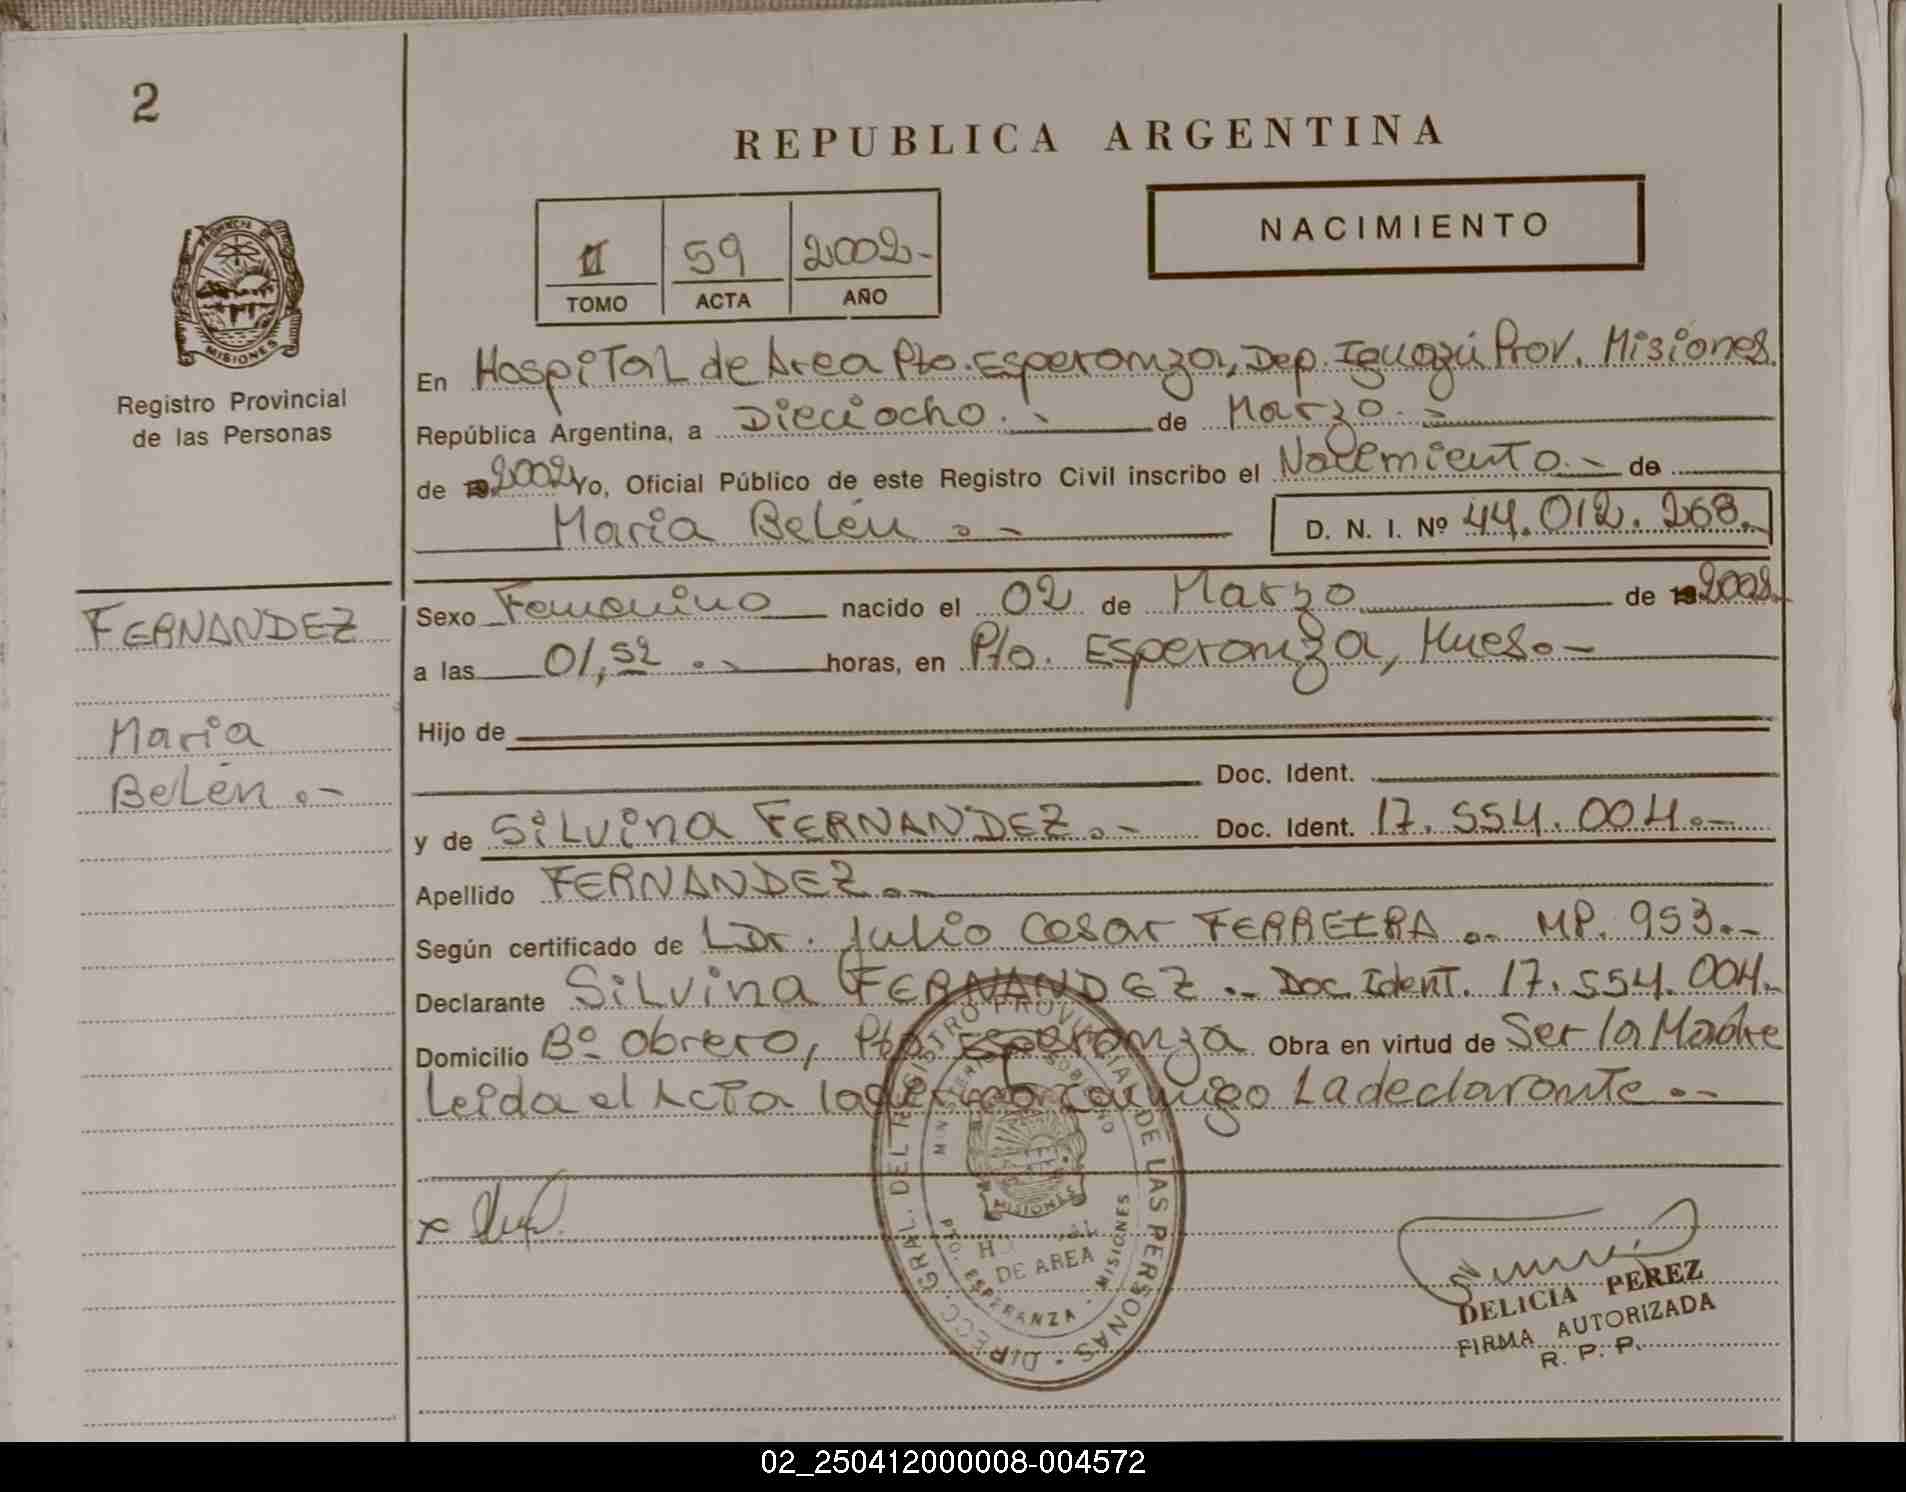 2
REPUBLICA ARGENTINA
NACIMIENTO
59 2002-
TOMO ACTA AÑO
PROVINCIA DE
MISIONES
Registro Provincial
de las Personas
En Hospital de Area Pto. Esperanza, Dep. Iguazú Prov. Misiones.
República Argentina, a Dieciocho.- de Marzo.-
de 2002 Yo, Oficial Público de este Registro Civil inscribo el Nacimiento.- de
Maria Belén.-
D. N. I. Nº 44.012.268.-
FERNANDEZ
Maria
Belén.-
Sexo Femenino nacido el 02 de Marzo de 2002.-
a las 01,52.- horas, en Pto. Esperanza, Mnes.-
Hijo de
Doc. Ident.
y de Silvina FERNANDEZ.- Doc. Ident. 17.554.004.-
Apellido FERNANDEZ.-
Según certificado de Dr. Julio Cesar FERREIRA.- MP. 953.-
Declarante Silvina FERNANDEZ.- Doc. Ident. 17.554.004.-
Domicilio Bº Obrero, Pto. Esperanza Obra en virtud de Ser la Madre
Leida el Acta la firma conmigo La declarante.-
DIRECC. GRAL. DEL REGISTRO PROVINCIAL DE LAS PERSONAS
MINISTERIO GOBIERNO
MISIONES
DE AREA
PTO. ESPERANZA - MISIONES
DELICIA PEREZ
FIRMA AUTORIZADA
R. P. P.
02_250412000008-004572